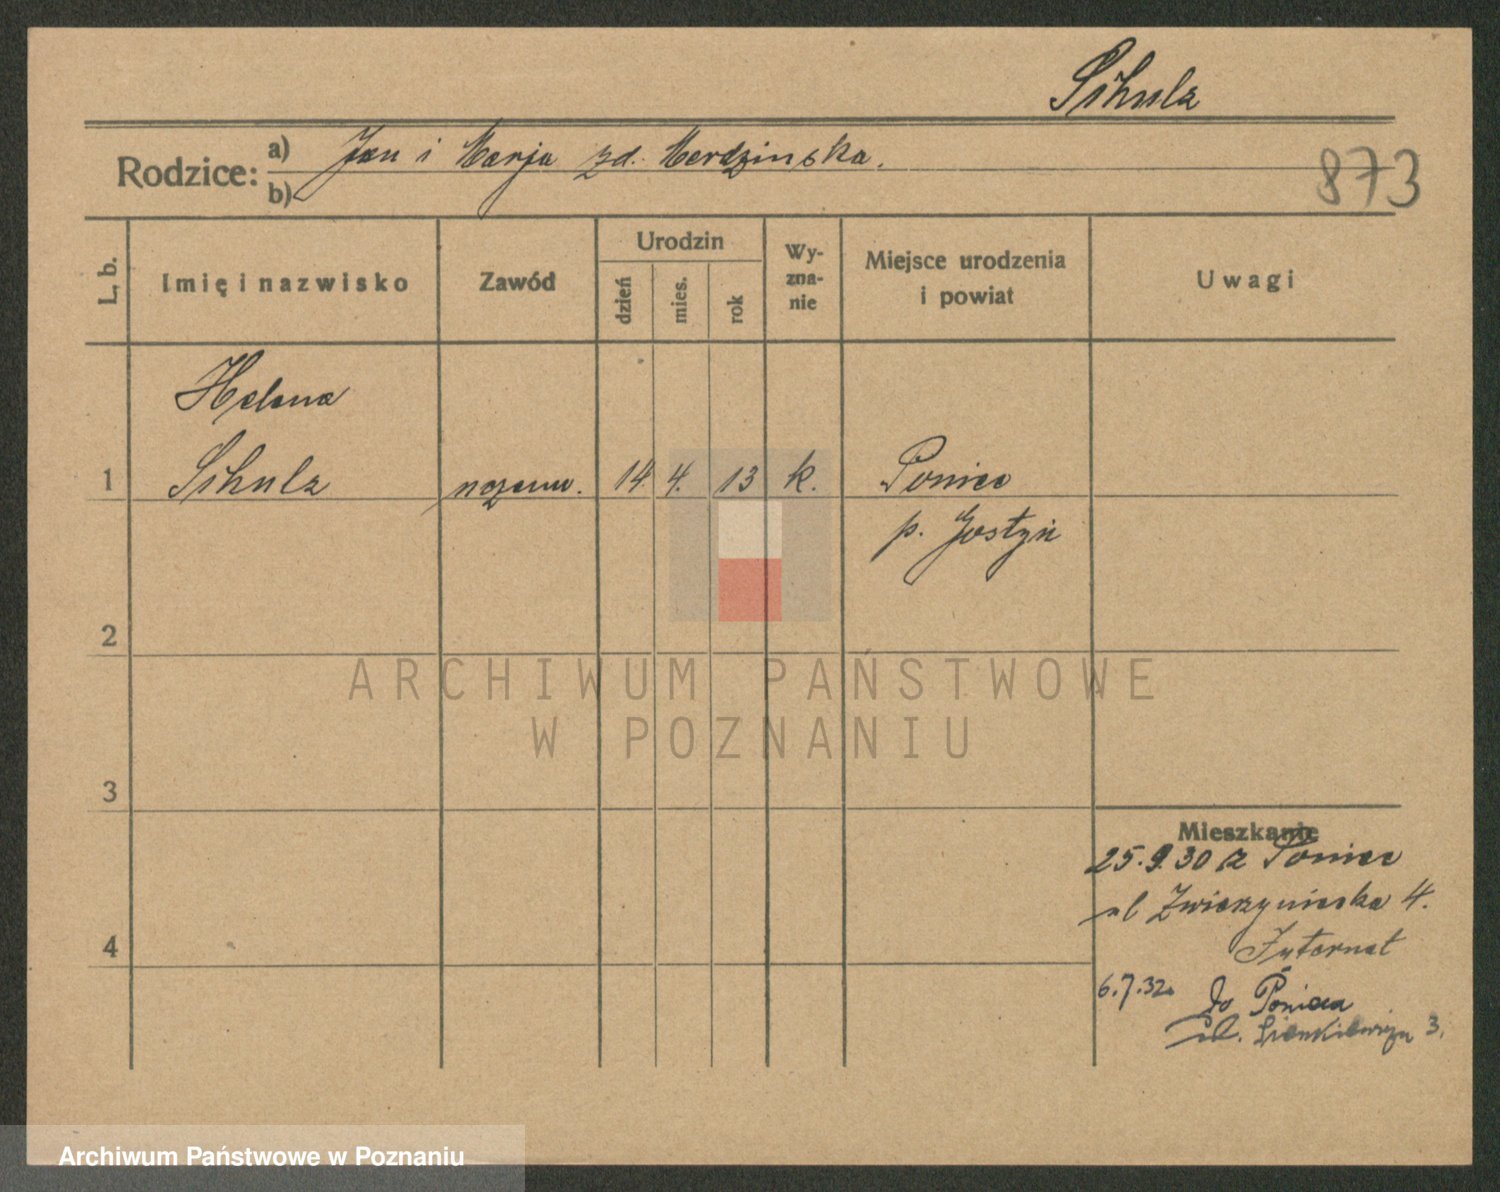 Schulz
Rodzice: a) Jan i Marja zd. Merdzinska.
b)
873
L. b.
Imię i nazwisko
Zawód
Urodzin
dzień
mies.
rok
Wy-
zna-
nie
Miejsce urodzenia
i powiat
Uwagi
Helena
1 Schulz uczenn. 14 4. 13 k. Poniec
p. Gostyń
2
ARCHIWUM PAŃSTWOWE
W POZNANIU
3
Mieszkanie
25.9.30 z Poniec
ul Zwierzyniecka 4.
4
Internat
6.7.32. do Ponieca
ul. Sienkiewicza 3.
Archiwum Państwowe w Poznaniu